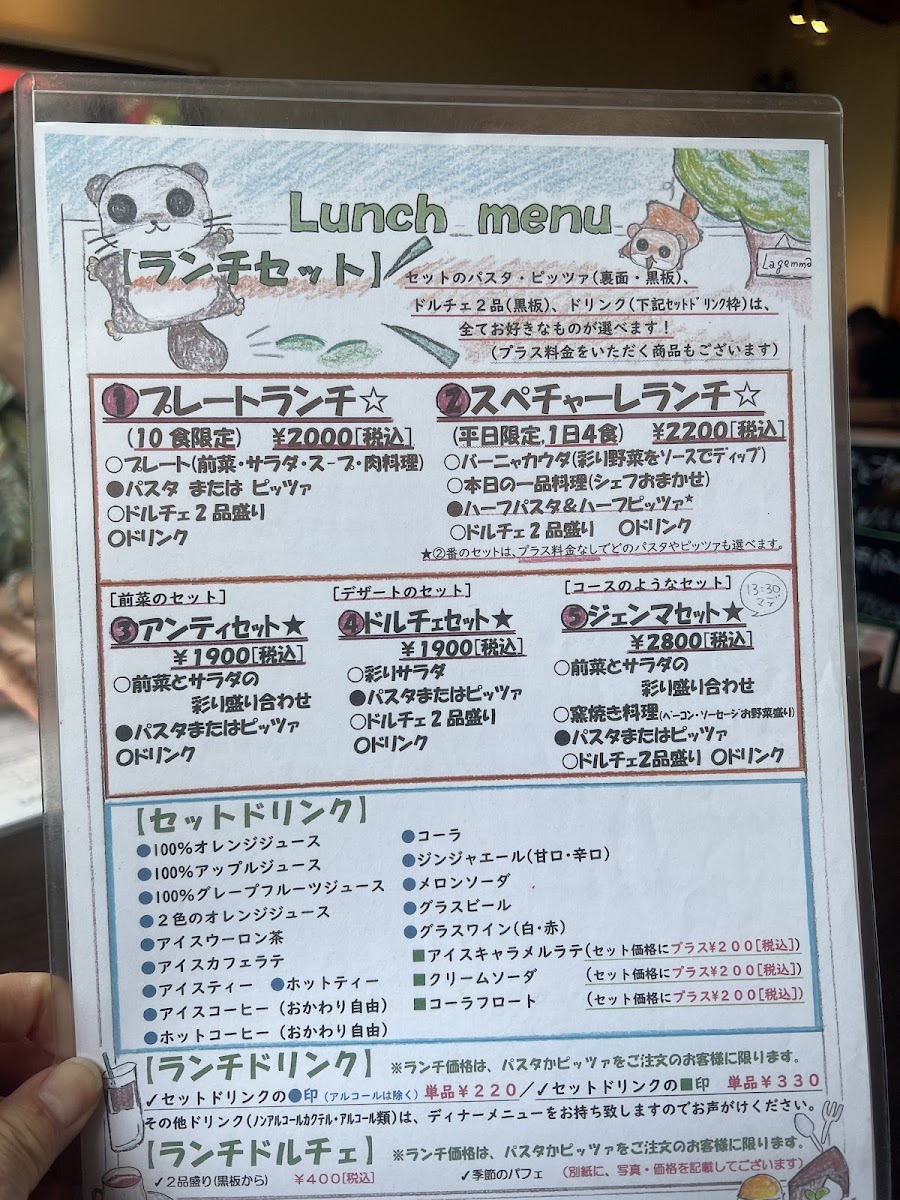 Lunch menu
Lagemma
【ランチセット】
セットのパスタ・ピッツァ(裏面・黒板)、
ドルチェ2品(黒板)、ドリンク(下記ｾｯﾄﾄﾞﾘﾝｸ枠)は、
全てお好きなものが選べます！
(プラス料金をいただく商品もございます)
①プレートランチ☆
(10食限定) ¥2000[税込]
○プレート(前菜・サラダ・スープ・肉料理)
●パスタ または ピッツァ
○ドルチェ2品盛り
○ドリンク
②スペチャーレランチ☆
(平日限定,1日4食) ¥2200[税込]
○バーニャカウダ(彩り野菜をソースでディップ)
○本日の一品料理(シェフおまかせ)
●ハーフパスタ&ハーフピッツァ★
○ドルチェ2品盛り ○ドリンク
★②番のセットは、プラス料金なしでどのパスタやピッツァも選べます。
[前菜のセット]
③アンティセット★
¥1900[税込]
○前菜とサラダの
彩り盛り合わせ
●パスタまたはピッツァ
○ドリンク
[デザートのセット]
④ドルチェセット★
¥1900[税込]
○彩りサラダ
●パスタまたはピッツァ
○ドルチェ2品盛り
○ドリンク
[コースのようなセット]
13:30マデ
⑤ジェンマセット★
¥2800[税込]
○前菜とサラダの
彩り盛り合わせ
○窯焼き料理(ベーコン・ソーセージお野菜盛り)
●パスタまたはピッツァ
○ドルチェ2品盛り ○ドリンク
【セットドリンク】
●100%オレンジジュース
●100%アップルジュース
●100%グレープフルーツジュース
●2色のオレンジジュース
●アイスウーロン茶
●アイスカフェラテ
●アイスティー ●ホットティー
●アイスコーヒー (おかわり自由)
●ホットコーヒー (おかわり自由)
●コーラ
●ジンジャエール(甘口・辛口)
●メロンソーダ
●グラスビール
●グラスワイン(白・赤)
■アイスキャラメルラテ(セット価格にプラス¥200[税込])
■クリームソーダ (セット価格にプラス¥200[税込])
■コーラフロート (セット価格にプラス¥200[税込])
【ランチドリンク】 ※ランチ価格は、パスタかピッツァをご注文のお客様に限ります。
✓セットドリンクの●印 (アルコールは除く) 単品¥220/✓セットドリンクの■印 単品¥330
その他ドリンク(ﾉﾝｱﾙｺｰﾙｶｸﾃﾙ・ｱﾙｺｰﾙ類)は、ディナーメニューをお持ち致しますのでお声がけください。
【ランチドルチェ】 ※ランチ価格は、パスタかピッツァをご注文のお客様に限ります。
✓2品盛り(黒板から) ¥400[税込] ✓季節のパフェ (別紙に、写真・価格を記載してございます)